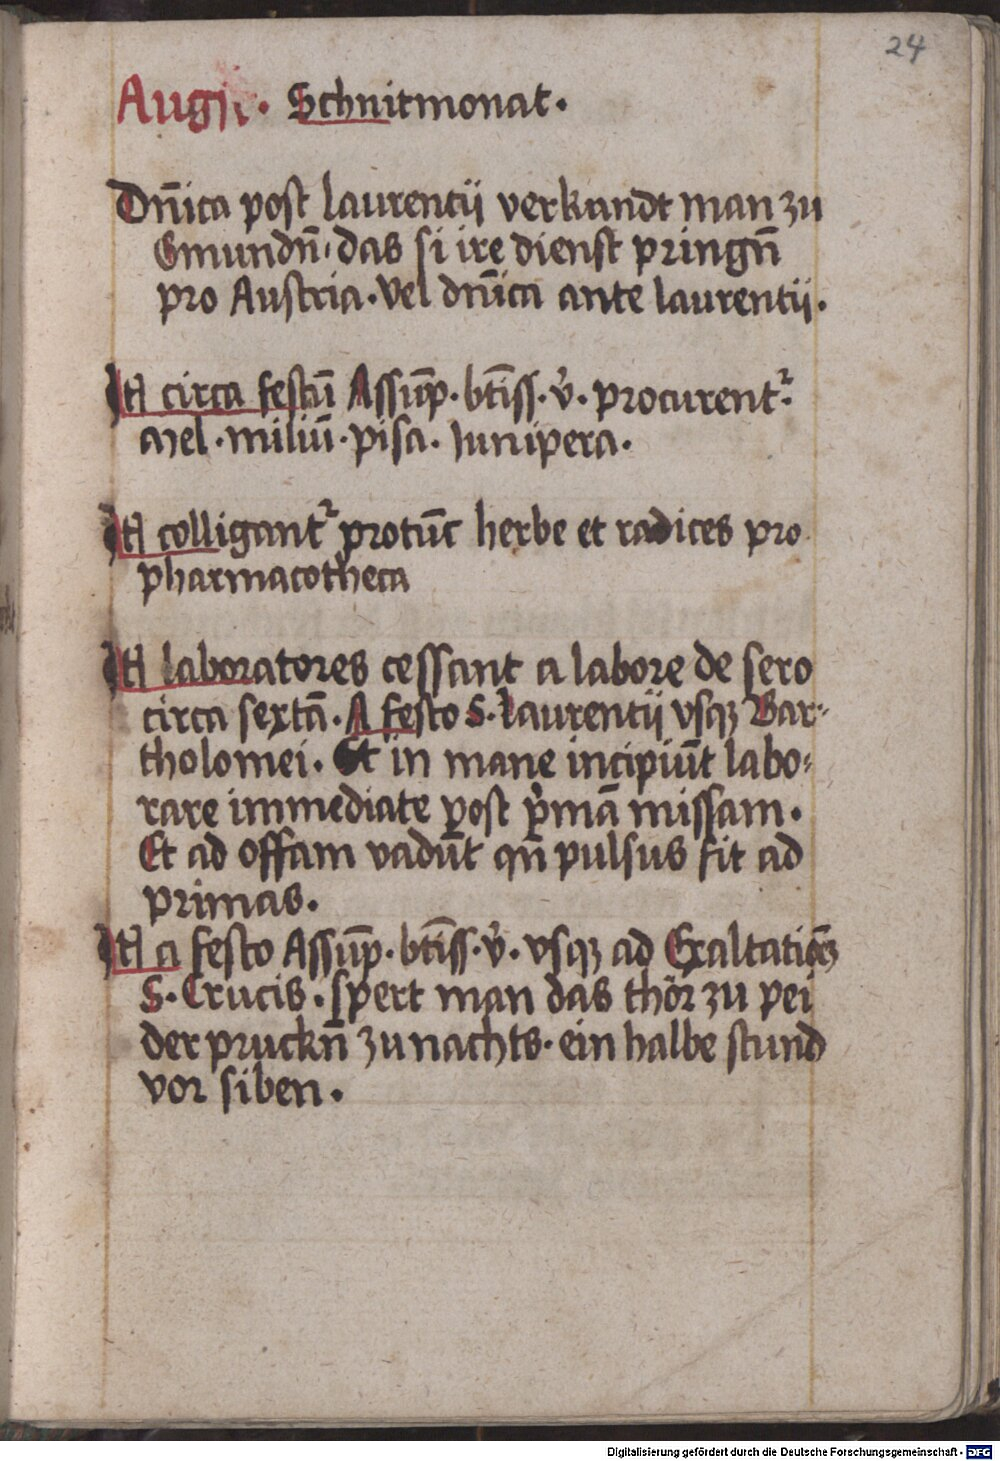 24
Augu. Schnitmonat.
Dn̄ica post laurentij verkundt man zu
Gmundn̄, das si ire dienst pringn̄
pro Austria. Vel dn̄ica ante laurentij.
Itē circa festū Assūp. bt̄iss. v̓. procurent᷑.
mel. miliū. pisa. Iunipera.
Itē colligant᷑ protūc herbe et radices pro
pharmacotheca
Itē laboratores cessant a labore de sero
circa sextā. A festo S. Laurentij vsqꝫ Bar-
tholomei. Et in mane incipiūt labo-
rare immediate ꝑost p̓mā missam.
Et ad offam vadūt qn̄ pulsus fit ad
primas.
Itē a festo Assūp. bt̄iss. v̓. vsqꝫ ad Exaltatiōꝫ
S. Crucis. spert man das thör zu pei
der pruckn̄ zu nachts. ein halbe stund
vor siben.
Digitalisierung gefördert durch die Deutsche Forschungsgemeinschaft - DFG